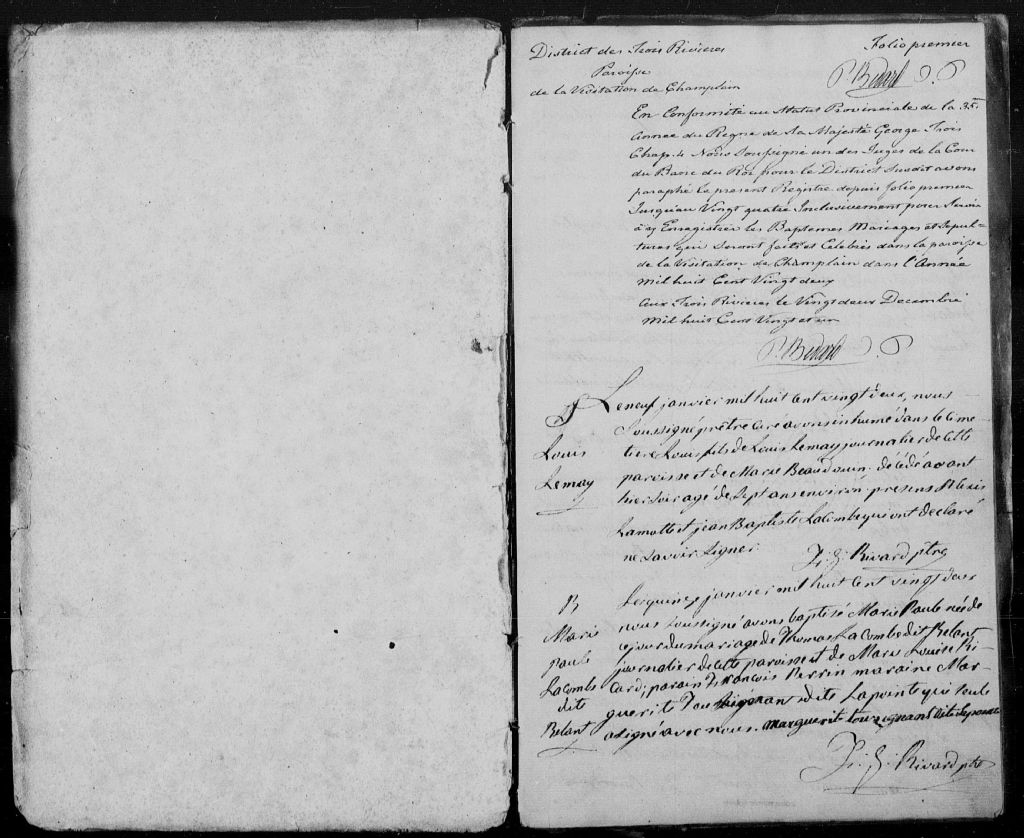 District des Trois Rivieres
Folio premier
Paroisse
P. Bedard J. P
de la Visitation de Champlain
En Conformité au Statut Provinciale de la 35e
Année du Regne de Sa Majesté George Trois
Chap. 4 Nous Soussigné un des Juges de la Cour
du Banc du Roi pour le District Susdit avons
paraphé le present Registre depuis folio premier
Jusqu'au Vingt quatre Inclusivement pour Servir
à y Enregistrer les Baptemes Mariages et Sepul-
tures qui Seront faits et Celebrés dans la paroisse
de la Visitation de Champlain dans l'Année
mil huit Cent Vingt deux
Aux Trois Rivieres le Vingt deux Decembre
mil huit Cent Vingt et un
P. Bedard J. P
S
Louis
Lemay
Le neuf janvier mil huit cent vingt deux, nous
Soussigné prêtre curé avons inhumé dans le cime-
tiere Louis fils de Louis Lemay journalier de cette
paroisse et de Marie Beaudouin. décédé avant
hier soir agé de Sept ans environ. presens Alexis
Lamotte et jean Baptiste Lacombe qui ont declaré
ne Savoir Signer
Rivard ptre
B
Marie
Paule
Lacombe
dite
Relant
Le quinze janvier mil huit cent vingt deux
nous Soussigné avons baptisé Marie Paule née de
ce jour du mariage de Thomas Lacombe dit Relant
journalier de cette paroisse et de Marie Louise Ri-
card; parain François Perrin maraine Mar-
guerite Tousignant dite Lapointe qui seule
a signé avec nous. marguerit tousignant dite Lapointe
Rivard ptre